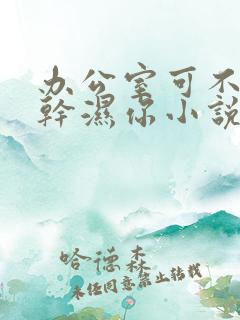 办公室可不
幹濕你小説
哈德森
未经同意禁止转载